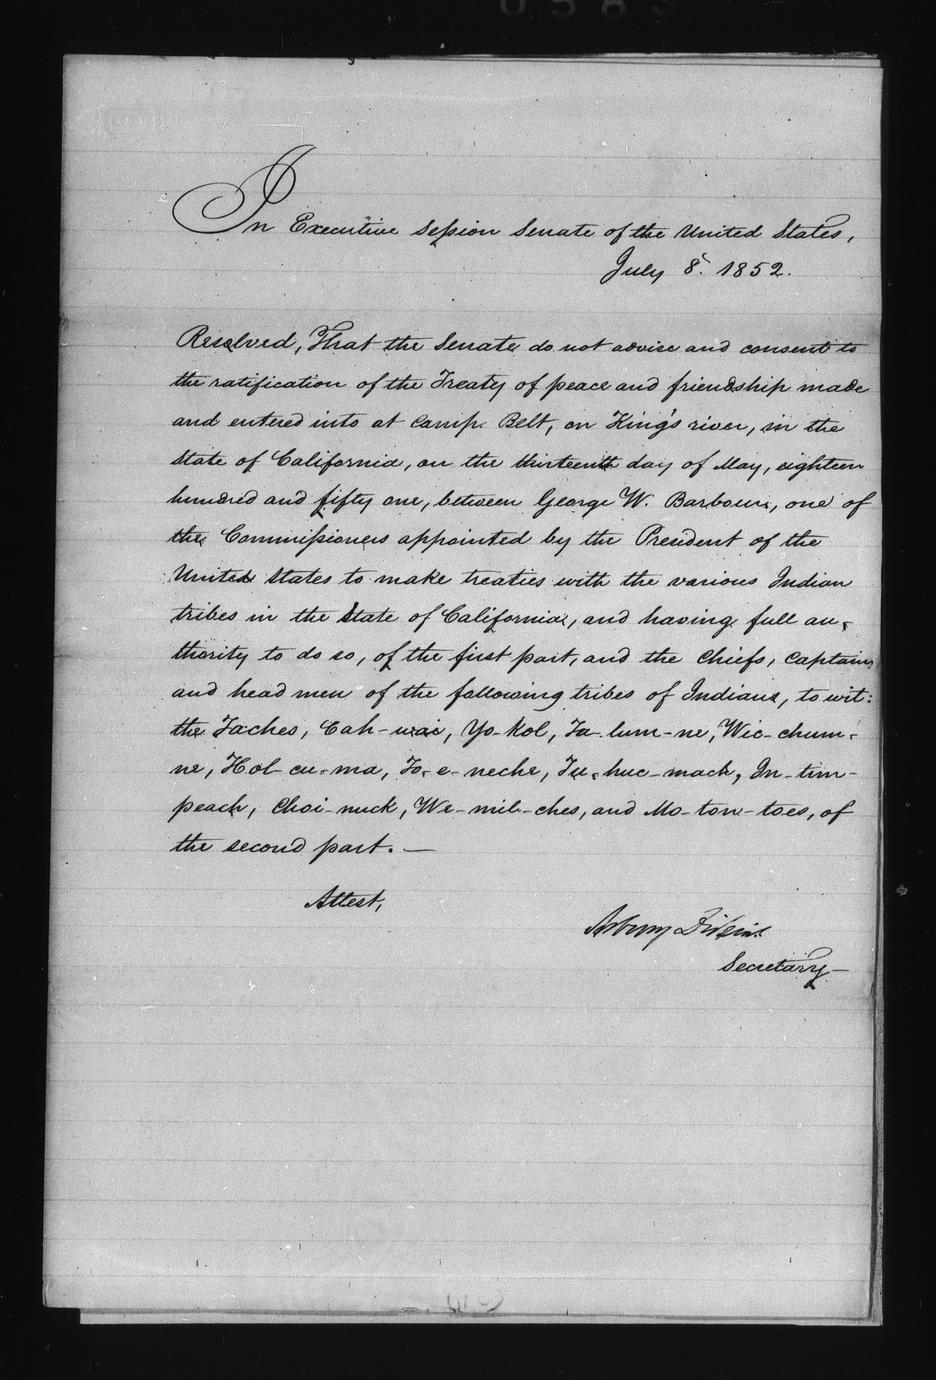 In Executive Session Senate of the United States,
July 8. 1852.
Resolved, That the Senate do not advise and consent to
the ratification of the Treaty of peace and friendship made
and entered into at Camp Belt, on King's river, in the
State of California, on the thirteenth day of May, eighteen
hundred and fifty one, between George W. Barbour, one of
the Commissioners appointed by the President of the
United States to make treaties with the various Indian
tribes in the State of California, and having full au-
thority to do so, of the first part, and the Chiefs, Captains
and head men of the following tribes of Indians, to wit:
the Taches, Cah-wai, Yo-kol, Ta-lum-ne, Wic-chum-
ne, Hol-cu-ma, To-e-neche, Tu-huc-mach, In-tim-
peach, Choi-nuck, We-mil-ches, and Mo-ton-toes, of
the second part. —
Attest,
Asbury Dickins
Secretary —